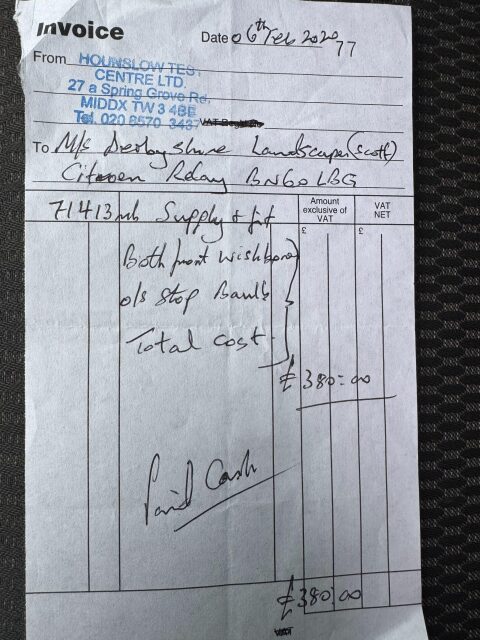 Invoice
Date 06th Feb 2020
77
From HOUNSLOW TEST
CENTRE LTD.
27 a Spring Grove Rd,
MIDDX TW3 4BE
Tel. 020 8570 3437
To M/s Derbyshire Landscaper (Scott)
Citroen Relay BN60LBG
71413 mls Supply & fit
Amount exclusive of VAT
VAT NET
£ £
Both front wishbone
o/s Stop
Total cost
£380=00
Paid Cash
£380:00